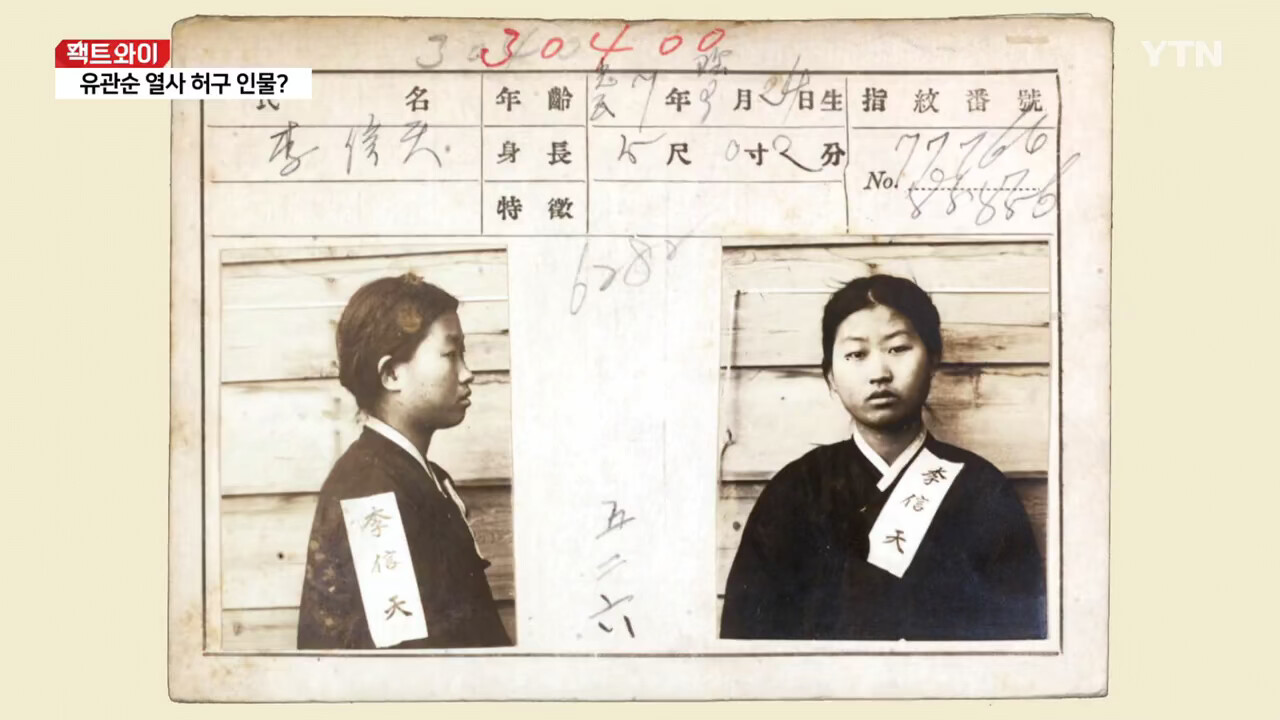 팩트와이
유관순 열사 허구 인물?
YTN
30400
氏 名
李信天
年齡
7年 月24日生
身長
5尺0寸2分
特徵
指紋番號
No.
77766
6782
五二六
李信天
李信天